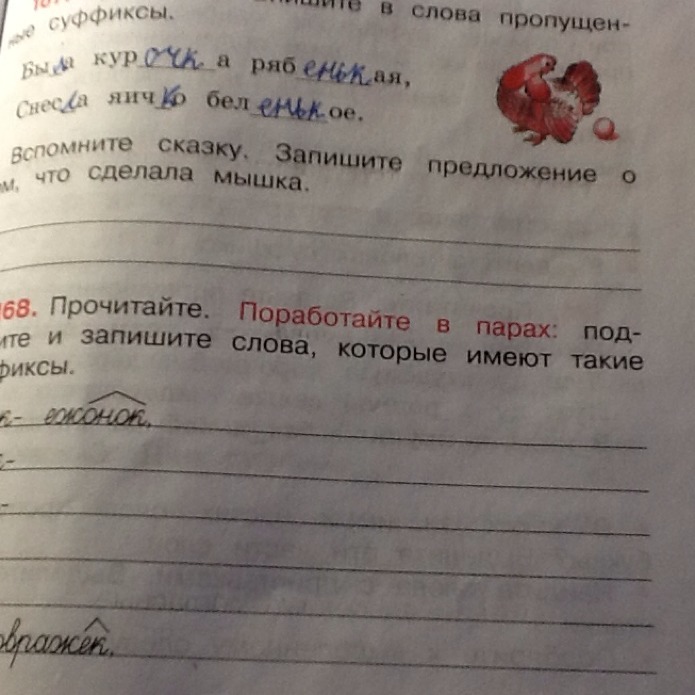 в слова пропущен-
ные суффиксы.
Была курочка рябенькая,
Снесла яичко беленькое.
Вспомните сказку. Запишите предложение о
том, что сделала мышка.
168. Прочитайте. Поработайте в парах: под-
ите и запишите слова, которые имеют такие
фиксы.
к- ежонок,
овражек,